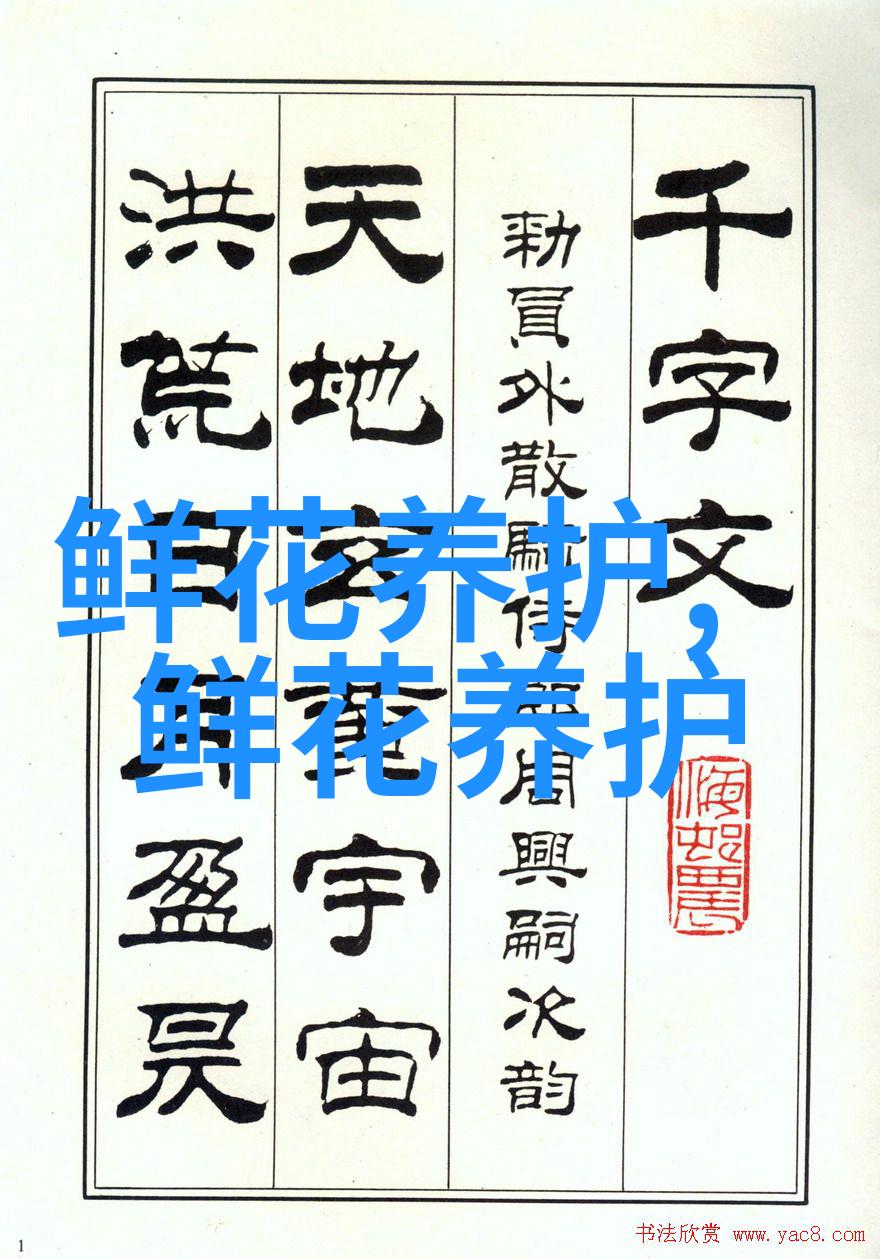 千字文
勑員外散騎侍郎周興嗣次韵
天地玄黃宇宙
洪荒日月盈昃
鲜花养护,
鲜花养护
1
书法欣赏 www.yac8.com